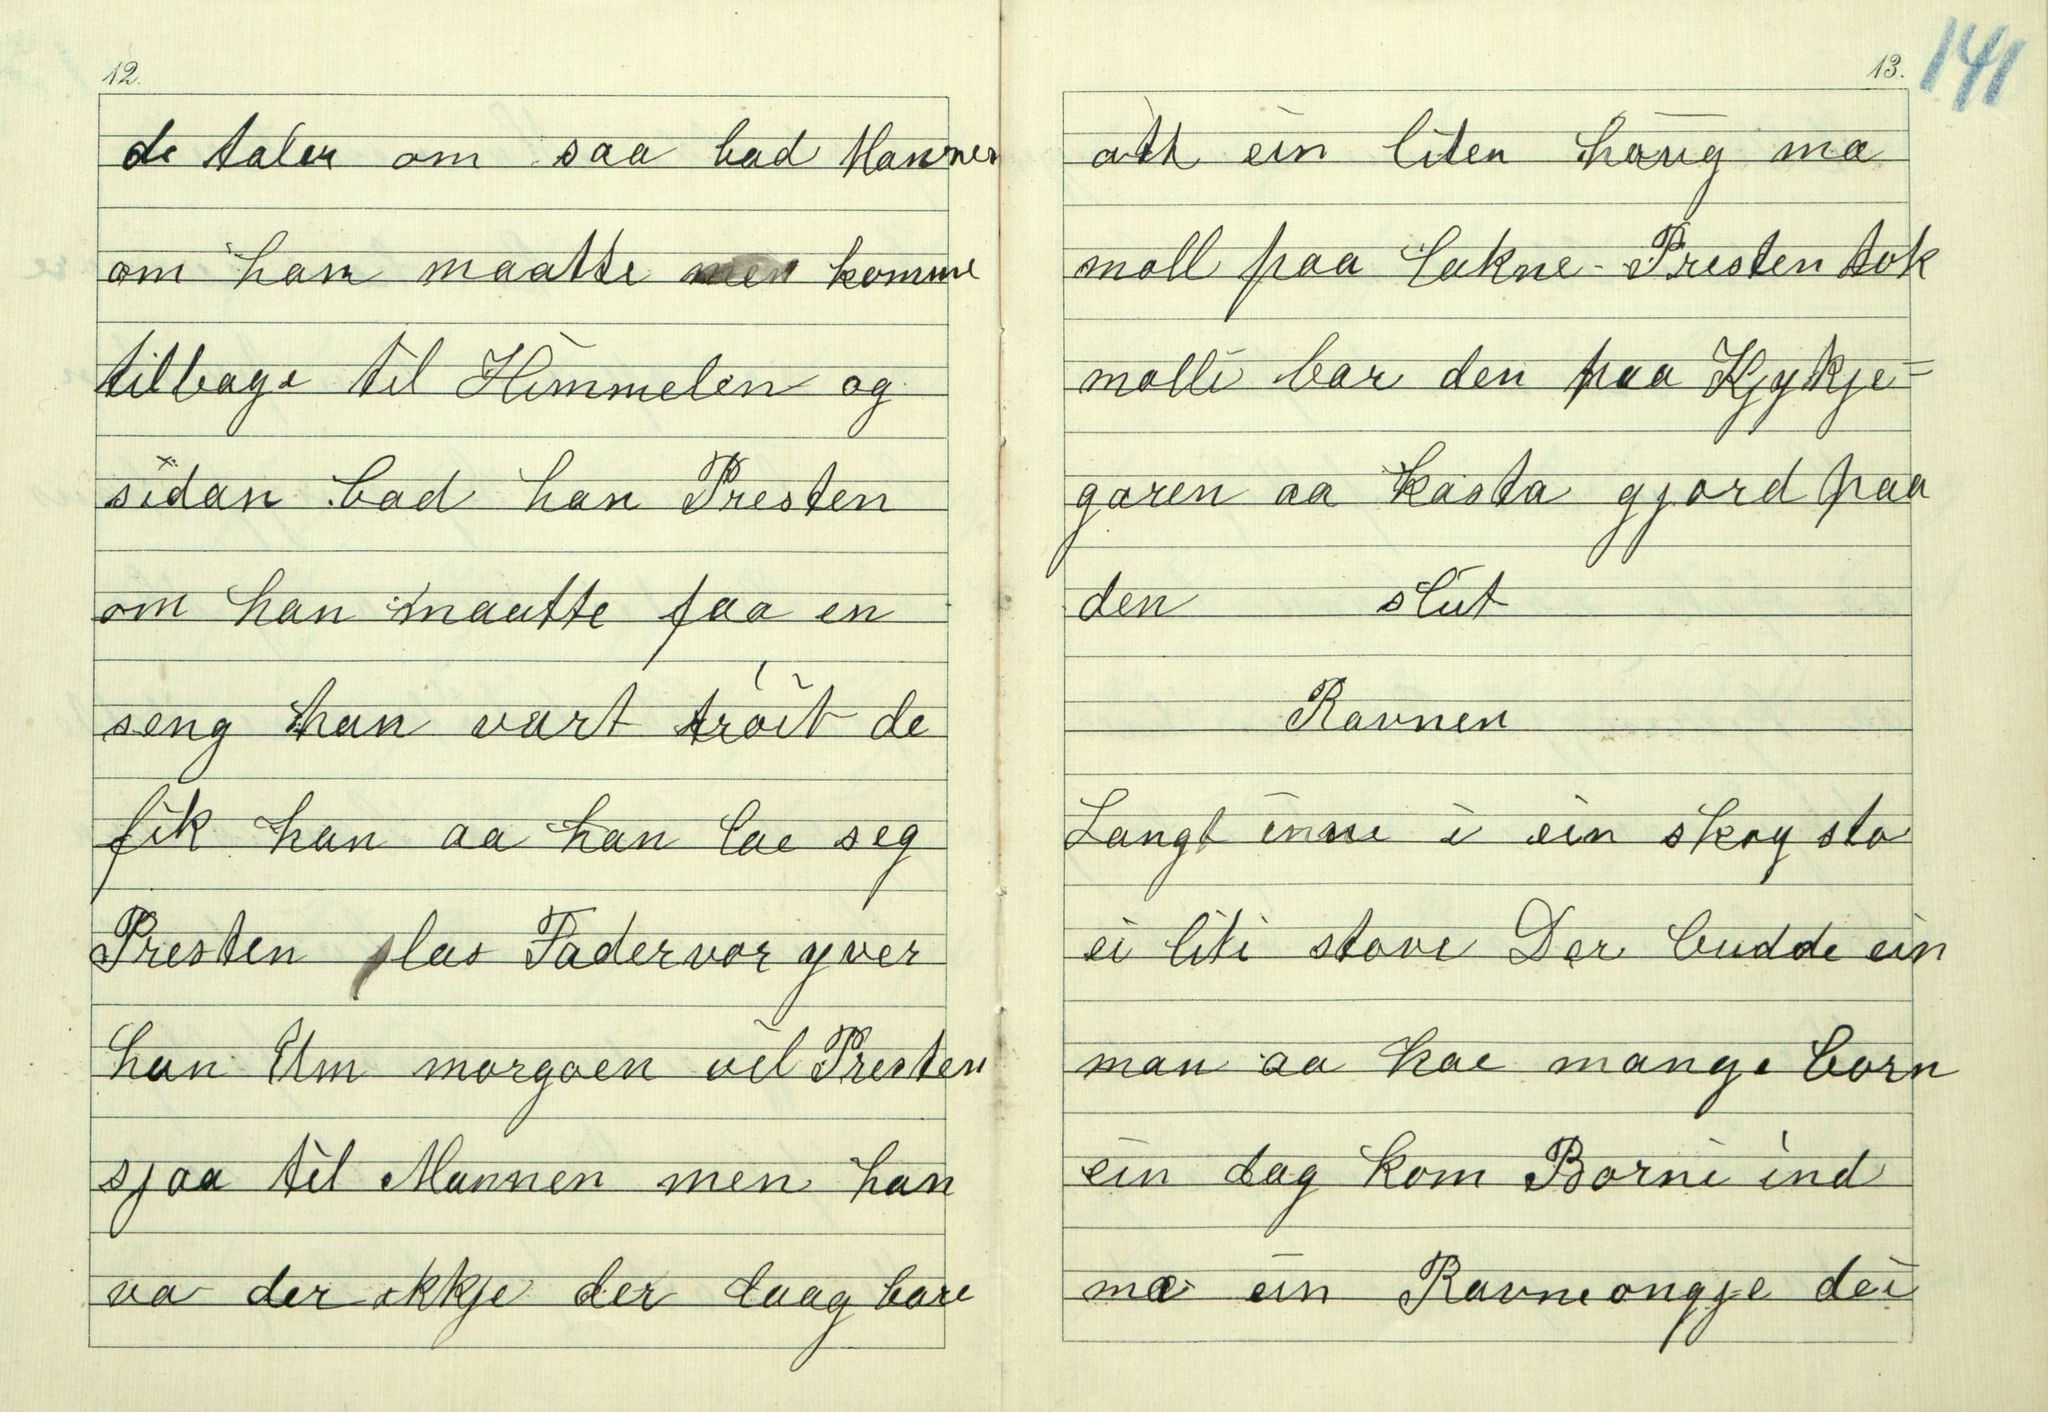 12.
de taler om saa bad Mannen
om han maatte komme
tilbage til Himmelen og
sidan bad han Presten
om han maatte faa en
seng han vart tröit de
fik han aa han lae seg
Presten las Fadervor yver
han Um morgoen vil Presten
sjaa til Mannen men han
va der okkje der laag bare
13. 141
att ein liten haug mæ
moll paa Lakne - Presten tok
molli bar den paa Kjykje=
garen aa kasta gjord paa
den slut
Ravnen
Langt inne i ein skog sto
ei liti stove Der budde ein
man aa hae mange born
ein dag kom Borni ind
mæ ein Ravneongje dei